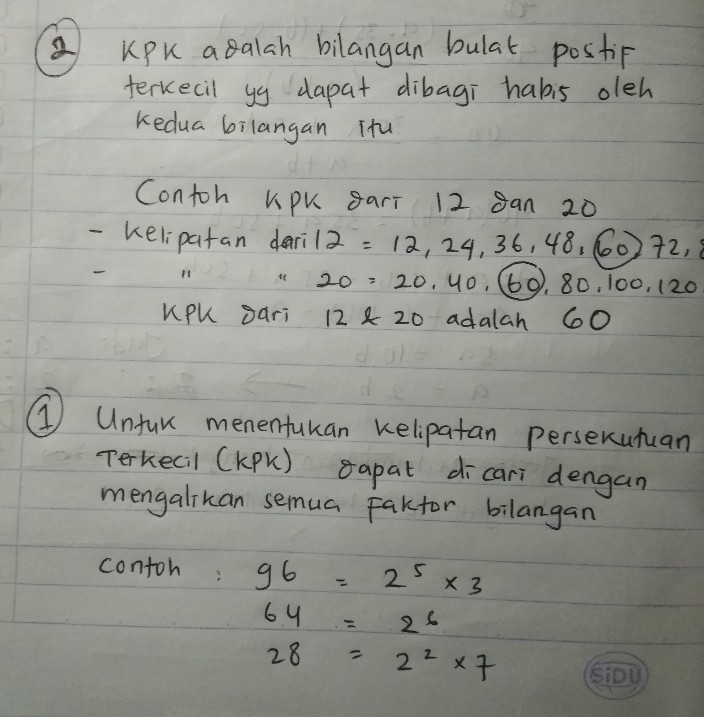 2 KPK adalah bilangan bulat postif
terkecil yg dapat dibagi habis oleh
kedua bilangan itu
Contoh KPK dari 12 dan 20
- Kelipatan dari 12 = 12, 24, 36, 48, 60, 72,
- " " 20 = 20, 40, 60, 80, 100, 120
KPK dari 12 & 20 adalah 60
1 Untuk menentukan kelipatan persekutuan
Terkecil (KPK) dapat di cari dengan
mengalikan semua faktor bilangan
contoh : 96 = 2⁵ × 3
64 = 2⁶
28 = 2² × 7
SiDU